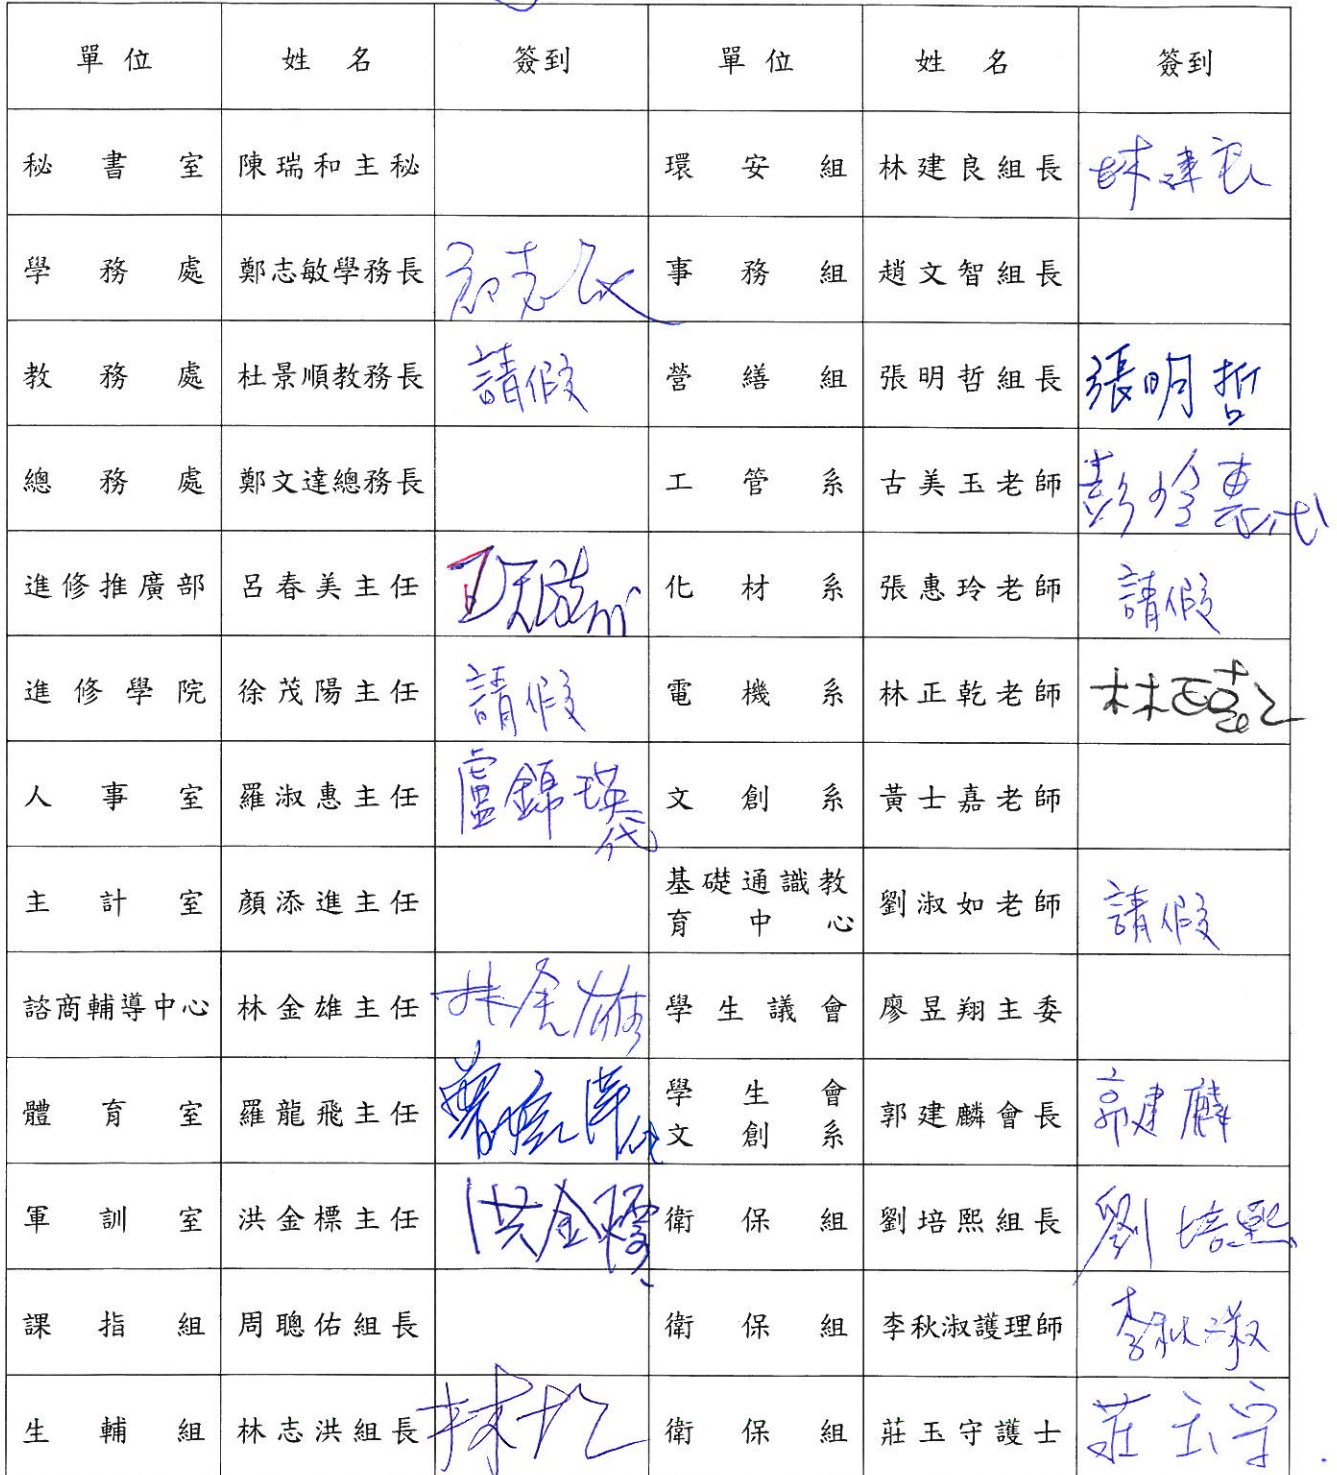 單位 姓名 簽到 單位 姓名 簽到
秘書室 陳瑞和主秘 環安組 林建良組長 林建良
學務處 鄭志敏學務長 事務組 趙文智組長
教務處 杜景順教務長 請假 營繕組 張明哲組長 張明哲
總務處 鄭文達總務長 工管系 古美玉老師 彭玲惠代
進修推廣部 呂春美主任 化材系 張惠玲老師 請假
進修學院 徐茂陽主任 請假 電機系 林正乾老師 林正乾
人事室 羅淑惠主任 盧錦瑛代 文創系 黃士嘉老師
主計室 顏添進主任 基礎通識教
育中心 劉淑如老師 請假
諮商輔導中心 林金雄主任 林金雄 學生議會 廖昱翔主委
體育室 羅龍飛主任 學生會
文創系 郭建麟會長 郭建麟
軍訓室 洪金標主任 洪金標 衛保組 劉培熙組長 劉培熙
課指組 周聰佑組長 衛保組 李秋淑護理師 李秋淑
生輔組 林志洪組長 衛保組 莊玉守護士 莊玉守